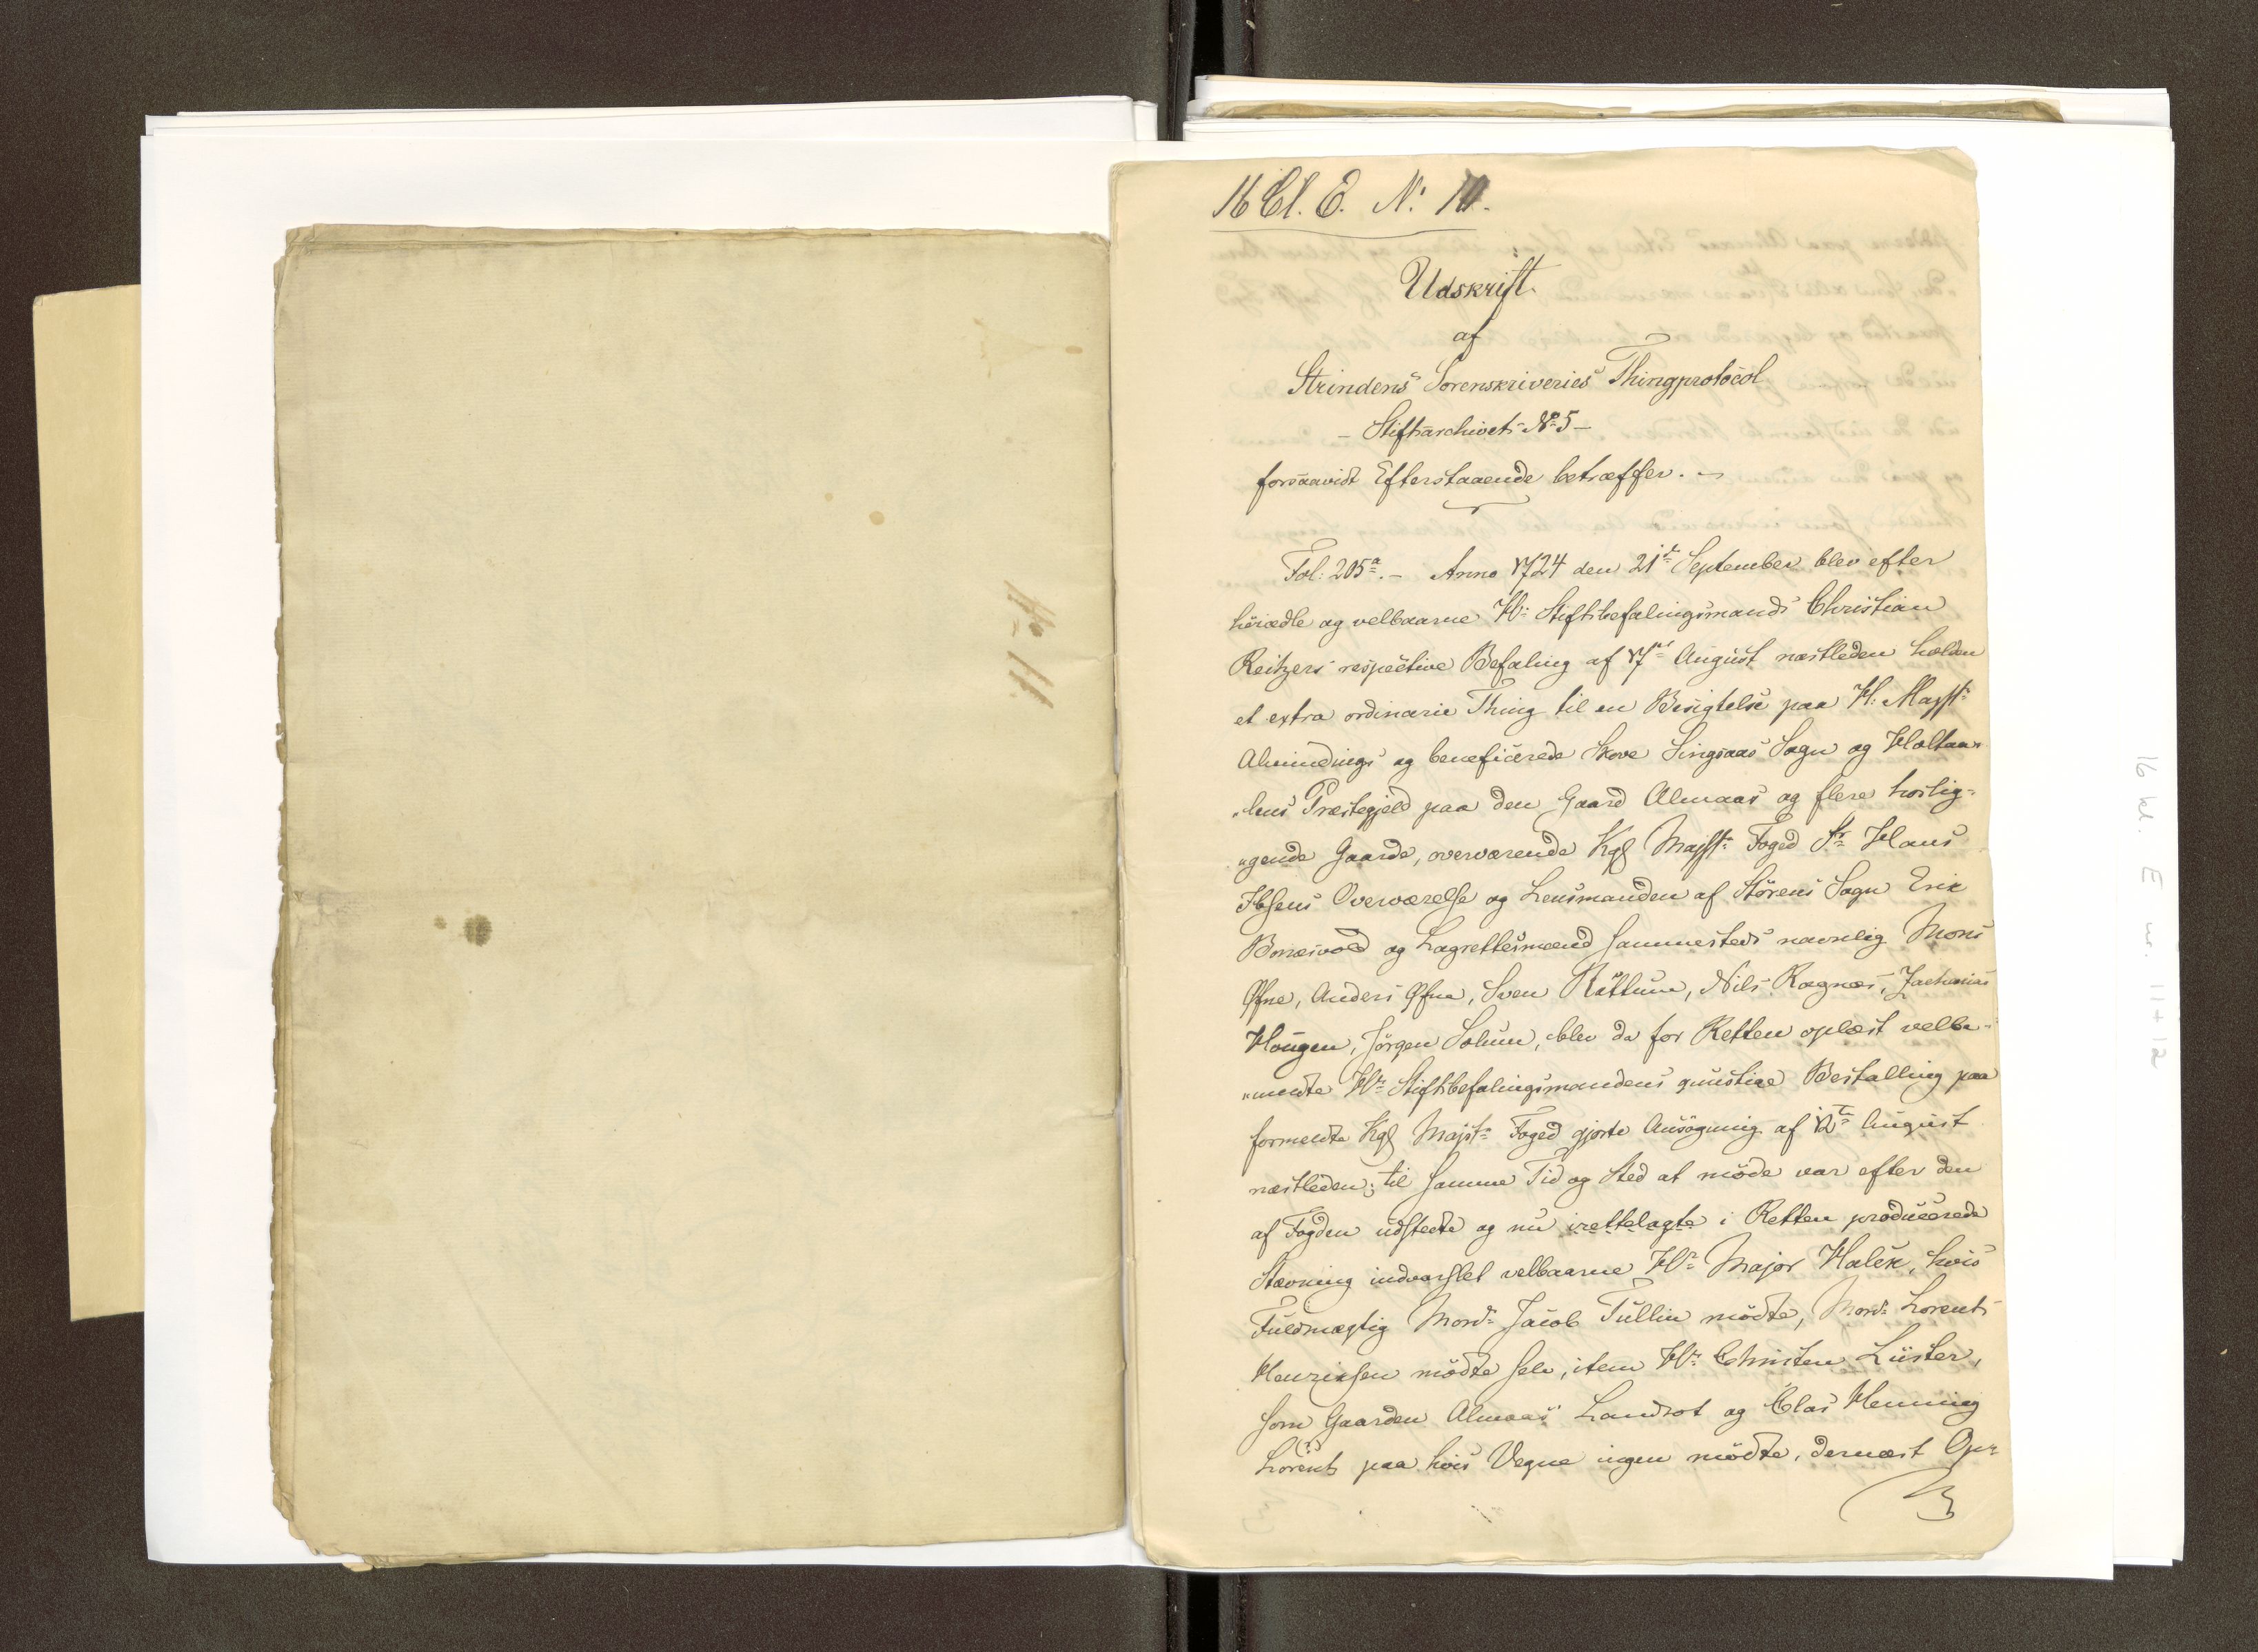 16 Cl. E. N: 11.
Udskrift
af
Strindens Sorenskriveries Thingprotocol
– Stiftsarchivets No 5 –
forsaavidt Efterstaaende betræffer. –
Fol: 205a. – Anno 1724 den 21de September blev efter
höiædle og velbaarne Hr: Stiftsbefalingsmands Christian
Reitzers respective Befaling af 17de August næstleden holden
et extra ordinarie Thing til en Besigtelse paa H: Majsts
Almindings og beneficerede Skove Singsaas Sogn og Holtaa„
„lens Præstegjeld paa den Gaard Almaas og flere hoslig„
„gende Gaarde, overværende Kgl Majsts Foged Sr Hans
Ibsens Overværelse og Lensmanden af Störens Sogn Erik
Bonesvold og Lagrettesmænd sammesteds navnlig Mons
Øfne, Anders Øfne, Sven Rättum, Nils Rognæs, Zacharias
Hougen, Jörgen Solum, blev da for Retten oplæst velbe„
„meldte Hr Stiftsbefalingsmandens gunstige Bestalling paa
formeldte Kgl Majsts Foged gjorte Ansögning af 12te August
næstleden; til samme Tid og Sted at möde var efter den
af Fogden udstedte og nu irettelagte i Retten producerede
Stævning indvarslet velbaarne Hr Major Halck, hvis
Fuldmægtig Monsr Jacob Tullin mödte, Monsr Lorents
Henriksen mödte selv, item Hr Christen Lüster,
som Gaarden Almaas Landrot og Clas Henning
Lorents paa hvis Vegne ingen mödte, dernæst Op„
No 11
16 kl. E nr. 11+12